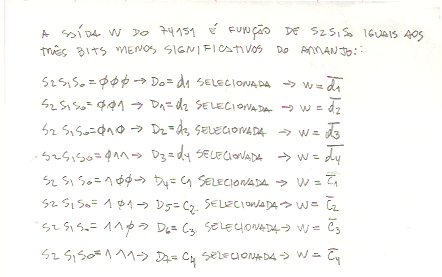 A SAÍDA W DO 74151 É FUNÇÃO DE S2S1S0 IGUAIS AOS
TRÊS BITS MENOS SIGNIFICATIVOS DO ARRANJO::
S2S1S0=φφφ→D0=d1 SELECIONADA → W = d̅1
S2S1S0=φφ1→D1=d2 SELECIONADA → W = d̅2
S2S1S0=φ1φ→D2=d3 SELECIONADA → W = d̅3
S2S1S0=φ11→D3=d4 SELECIONADA → W = d̅4
S2S1S0=1φφ→D4=C1 SELECIONADA → W = C̅1
S2S1S0=1φ1→D5=C2 SELECIONADA→ W = C̅2
S2S1S0=11φ→D6=C3 SELECIONADA→ W = C̅3
S2S1S0=111→D7=C4 SELECIONADA → W = C̅4